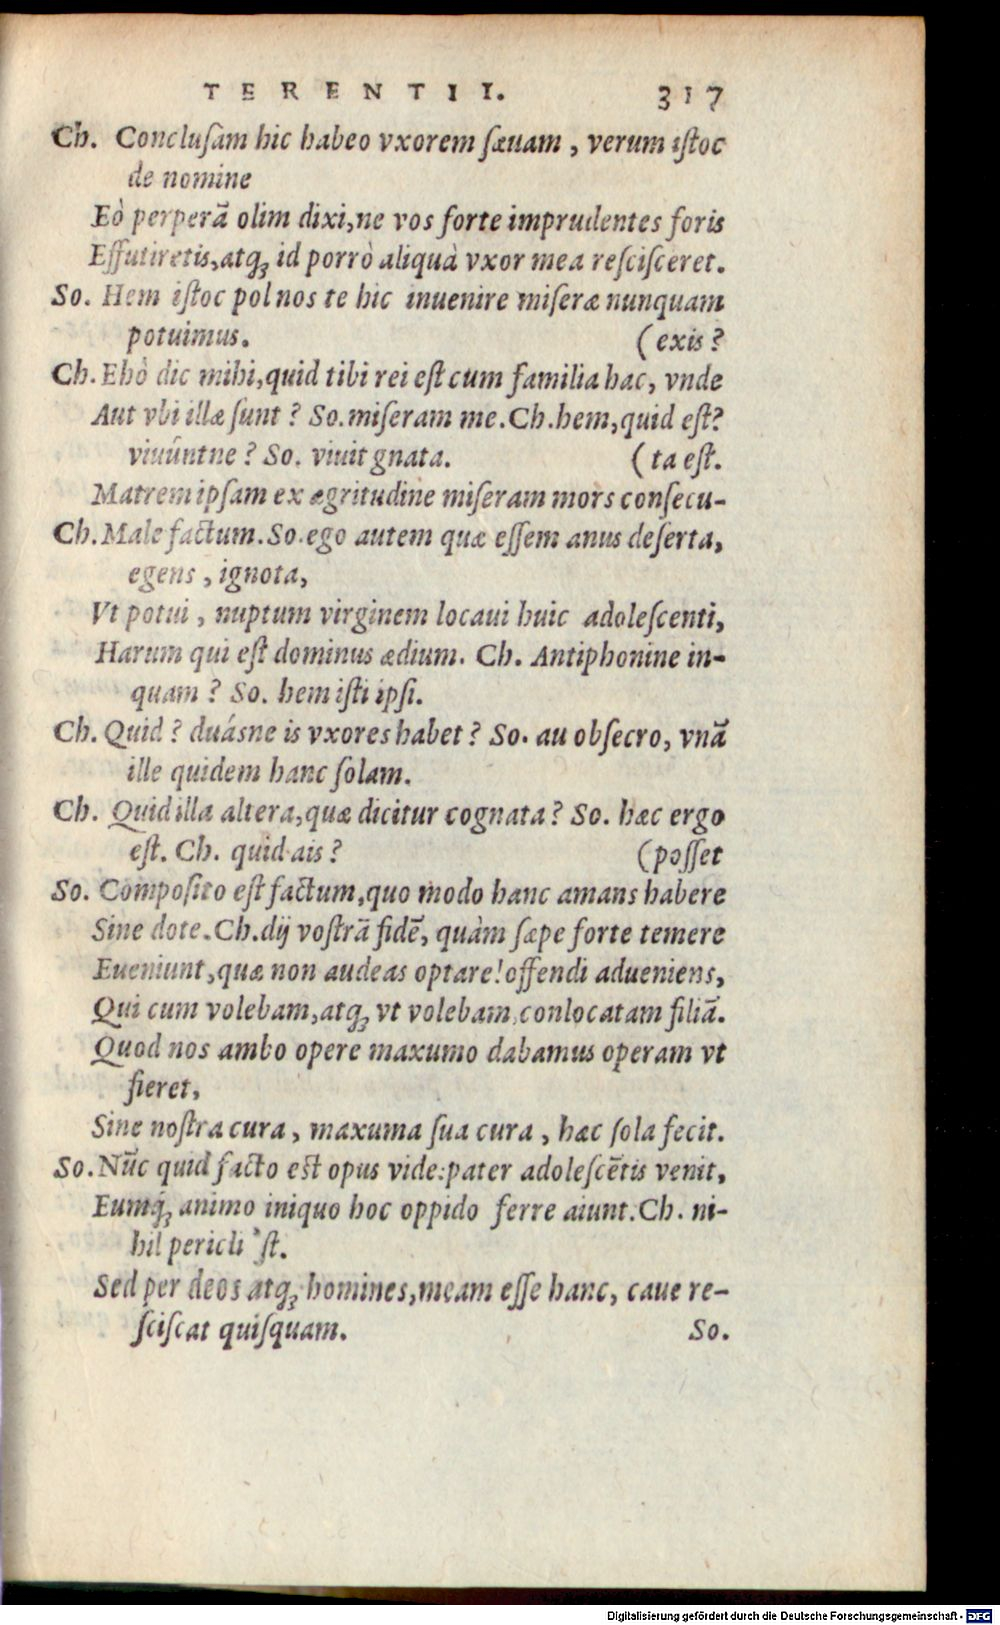 TERENTII. 317
Ch. Conclusam hic habeo vxorem sæuam, verum istoc
de nomine
Eò perperā olim dixi, ne vos forte imprudentes foris
Effutiretis, atq; id porrò aliquà vxor mea rescisceret.
So. Hem istoc pol nos te hic inuenire miseræ nunquam
potuimus. (exis?
Ch. Ehò dic mihi, quid tibi rei est cum familia hac, vnde
Aut vbi illæ sunt? So. miseram me. Ch. hem, quid est?
viuúntne? So. viuit gnata. (ta est.
Matrem ipsam ex ægritudine miseram mors consecu-
Ch. Male factum. So. ego autem quæ essem anus deserta,
egens, ignota,
Vt potui, nuptum virginem locaui huic adolescenti,
Harum qui est dominus ædium. Ch. Antiphonine in-
quam? So. hem isti ipsi.
Ch. Quid? duásne is vxores habet? So. au obsecro, vnā
ille quidem hanc solam.
Ch. Quid illa altera, quæ dicitur cognata? So. hæc ergo
est. Ch. quid ais? (posset
So. Composito est factum, quo modo hanc amans habere
Sine dote. Ch. dij vostrā fidē, quàm sæpe forte temere
Eueniunt, quæ non audeas optare! offendi adueniens,
Qui cum volebam, atq; vt volebam, conlocatam filiā.
Quod nos ambo opere maxumo dabamus operam vt
fieret,
Sine nostra cura, maxuma sua cura, hæc sola fecit.
So. Nūc quid facto est opus vide: pater adolescētis venit,
Eumq́; animo iniquo hoc oppido ferre aiunt. Ch. ni-
hil pericli 'st.
Sed per deos atq; homines, meam esse hanc, caue re-
sciscat quisquam. So.
Digitalisierung gefördert durch die Deutsche Forschungsgemeinschaft - DFG